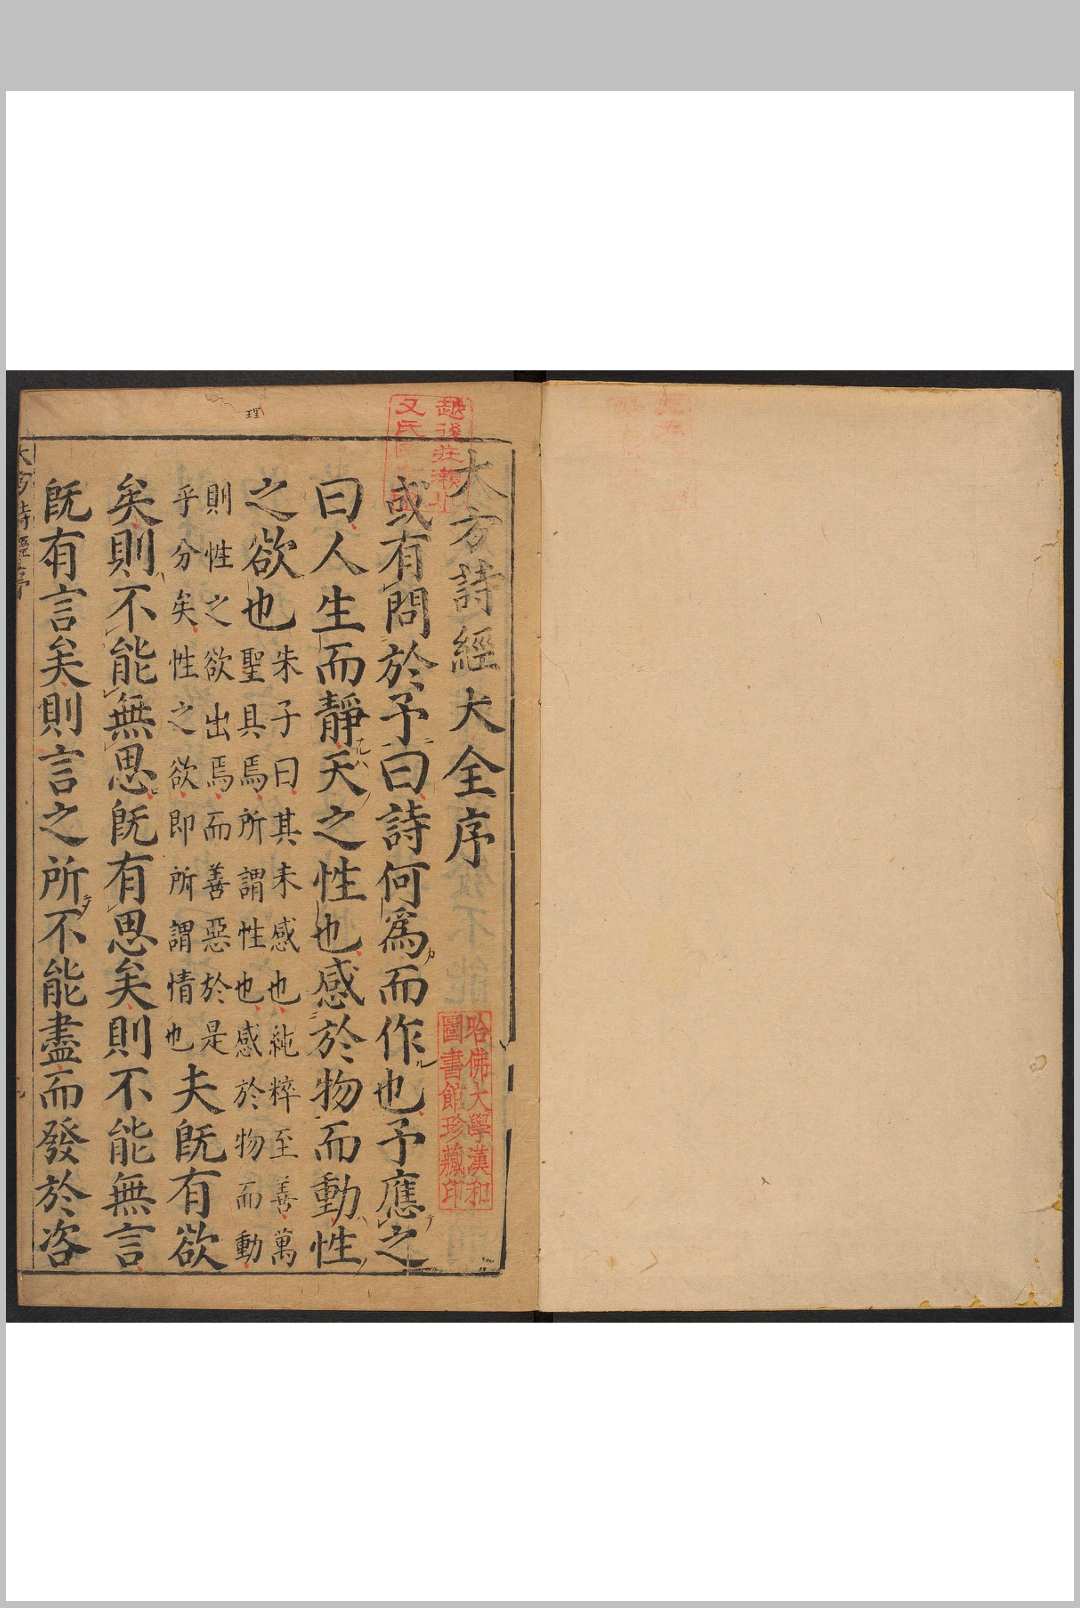 大方詩經大全序
或有問於予曰詩何爲而作也予應之
曰人生而靜天之性也感於物而動性
之欲也朱子曰其未感也純粹至善萬
聖具焉所謂性也感於物而動
則性之欲出焉而善惡於是
乎分矣性之欲即所謂情也夫旣有欲
矣則不能無思旣有思矣則不能無言
旣有言矣則言之所不能盡而發於咨
理
哈佛大學漢和
圖書館珍藏印